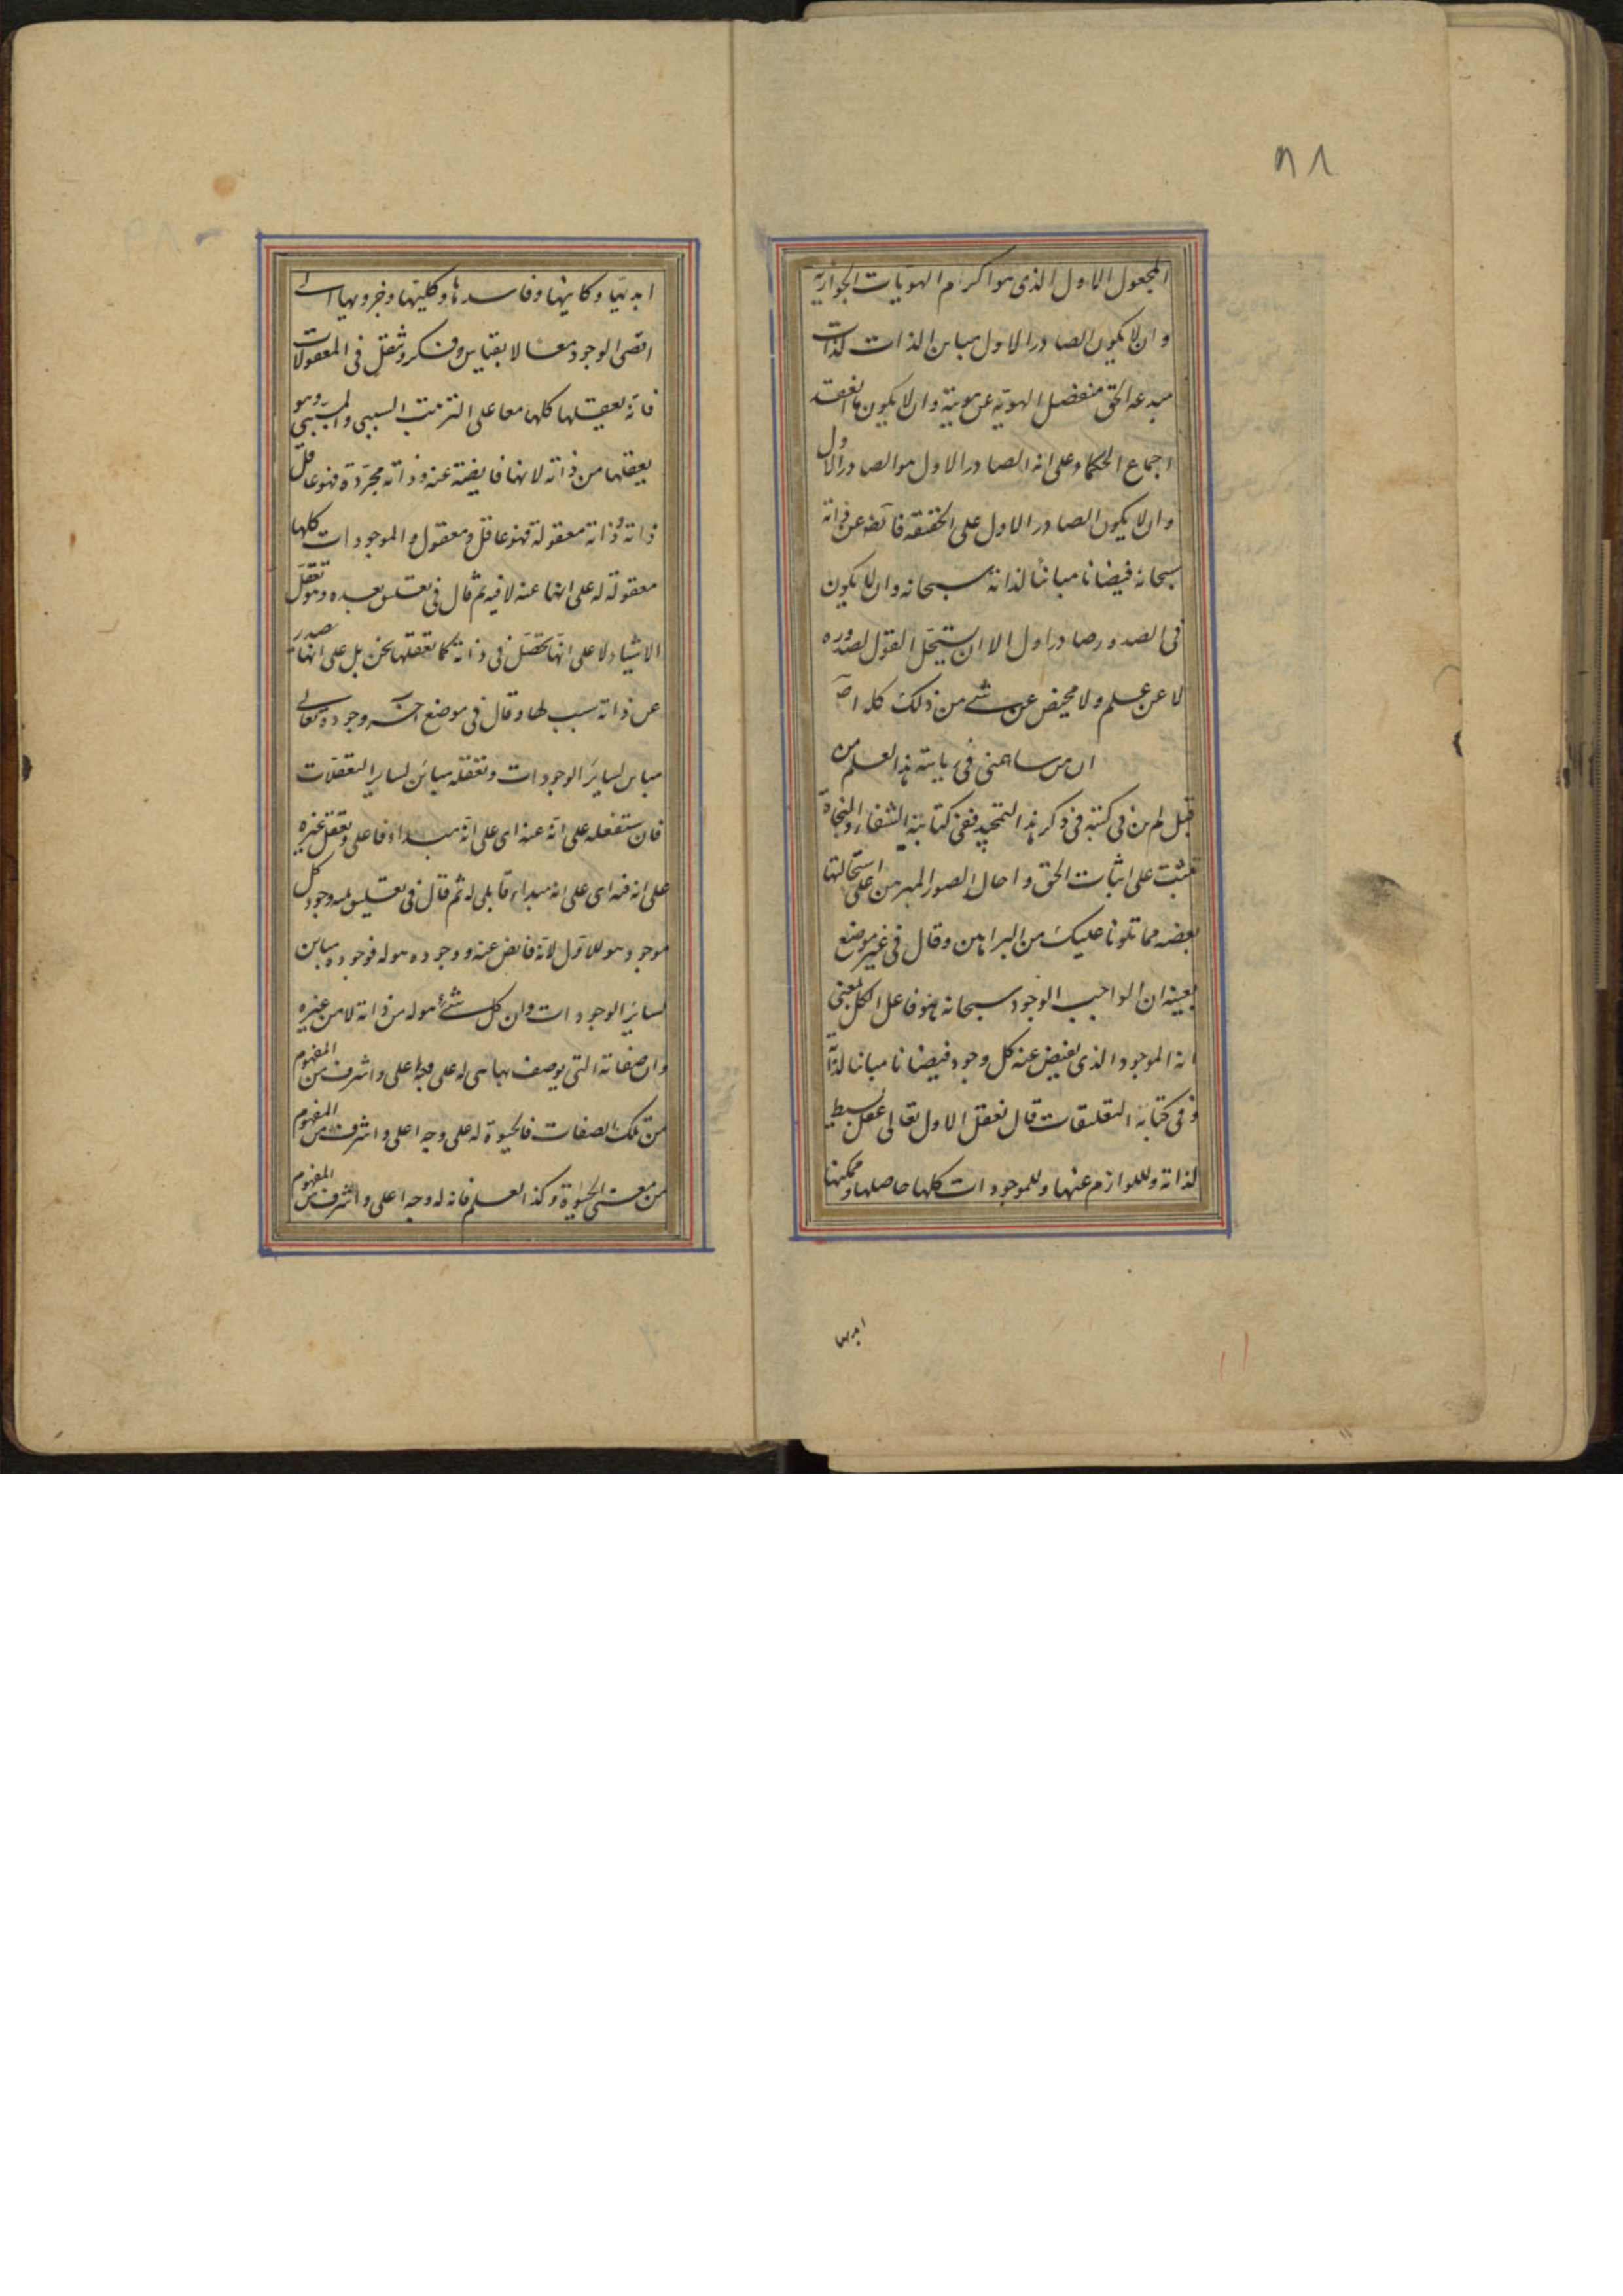 ٨١
المجعول الاول الذى هو اكرم الهويات الجوازية
وان لا يكون الصادر الاول مباين الذات لذات
مبدعه الحق منفصل الهوية عن هويته وان لا يكون ما انعقد
اجماع الحكماء على انه الصادر الاول هو الصادر الاول
وان لا يكون الصادر الاول على الحقيقة فائضه عن ذاته
سبحانه فيضانا مبائنا لذاته سبحانه وان لا يكون
فى الصدور صادر اول الا ان يستحيل القول لصدوره
لا عن علم ولا محيص عن شئ من ذلك كله اص
ان من ساهمنى فى رياسة هذا العلم من
قبل لم ين فى كتبه فى ذكر هذا التمجيد ففى كتابيه الشفاء والنجاة
تثبت على اثبات الحق واحال الصور المبرهن على استحالتها
بعضه مما تلونا عليك من البراهين وقال فى غير موضع
بعينه ان الواجب الوجود سبحانه هو فاعل الكل بمعنى
انه الموجود الذى يفيض عنه كل وجود فيضانا مباينا لذاته
وفى كتابه التعليقات قال تعقل الاول تعالى عقل بسيط
لذاته وللوازم عنها وللموجودات كلها حاصلها وممكنها
ابديها
ابديها وكاينها وفاسدها وكليتها وجزويها الى
اقصى الوجود معا لا بقياس وفكر وتنقل فى المعقولات
فانه يعقلها كلها معا على الترتيب السببى والمسببى وهو
يعقلها من ذاته لانها فايضة عنه وذاته مجردة فهو عاقل
ذاته وذاته معقولة فهو عاقل ومعقول والموجودات كلها
معقولة له على انها عنه لا فيه ثم قال فى تعليق بعده وهو تعقل
الاشياء لا على انها تحصل فى ذاته كما تعقلها نحن بل على انها تصدر
عن ذاته سبب لها وقال فى موضع اخر وجوده تعالى
مباين لساير الوجودات وتعقله مباين لساير التعقلات
فان تعقله على انه عنه اى على انه مبداء فاعلى وتعقل غيره
على انه فيه اى على انه مبداء قابلى له ثم قال فى تعليق يليه وجود كل
موجود هو للاول لانه فائض عنه ووجوده هو له فوجوده مباين
لساير الوجودات وان كل شئ هو له من ذاته لا من غيره
وان صفاته التى يوصف بها هى له على وجه اعلى واشرف من المفهوم
من تلك الصفات فالحيوة له على وجه اعلى واشرف من المفهوم
من معنى الحيوة وكذا العلم فانه له وجه اعلى واشرف من المفهوم